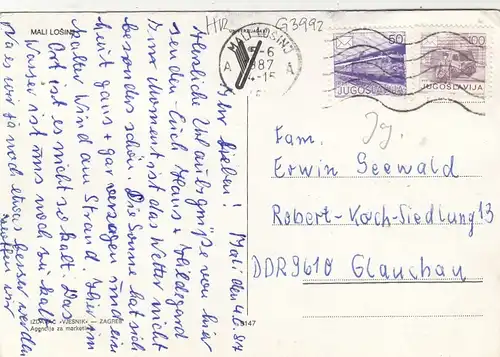 HR G3992
MALI LOŠINJ
MALI LOŠINJ
5-6
1987
-15
A A
60
JUGOSLAVIJA
100
JUGOSLAVIJA
Jg.
Mali den 4.6.87
Ihr Lieben!
Herzliche Urlaubsgrüße von hier
senden Euch Hans + Hildegard
Im Moment ist das Wetter nicht
besonders schön. Die Sonne hat sich
heut ganz + gar verzogen und ein
kalter Wind am Strand. Hier im
Ort ist es nicht so kalt. Das
Wasser ist uns noch zu kalt.
Na es wird ja noch etwas besser werden
hoffen wir
Fam.
Erwin Seewald
Robert-Koch-Siedlung 13
DDR 9610 Glauchau
IZDAVAČ »VJESNIK« — ZAGREB
Agencija za marketing
3147